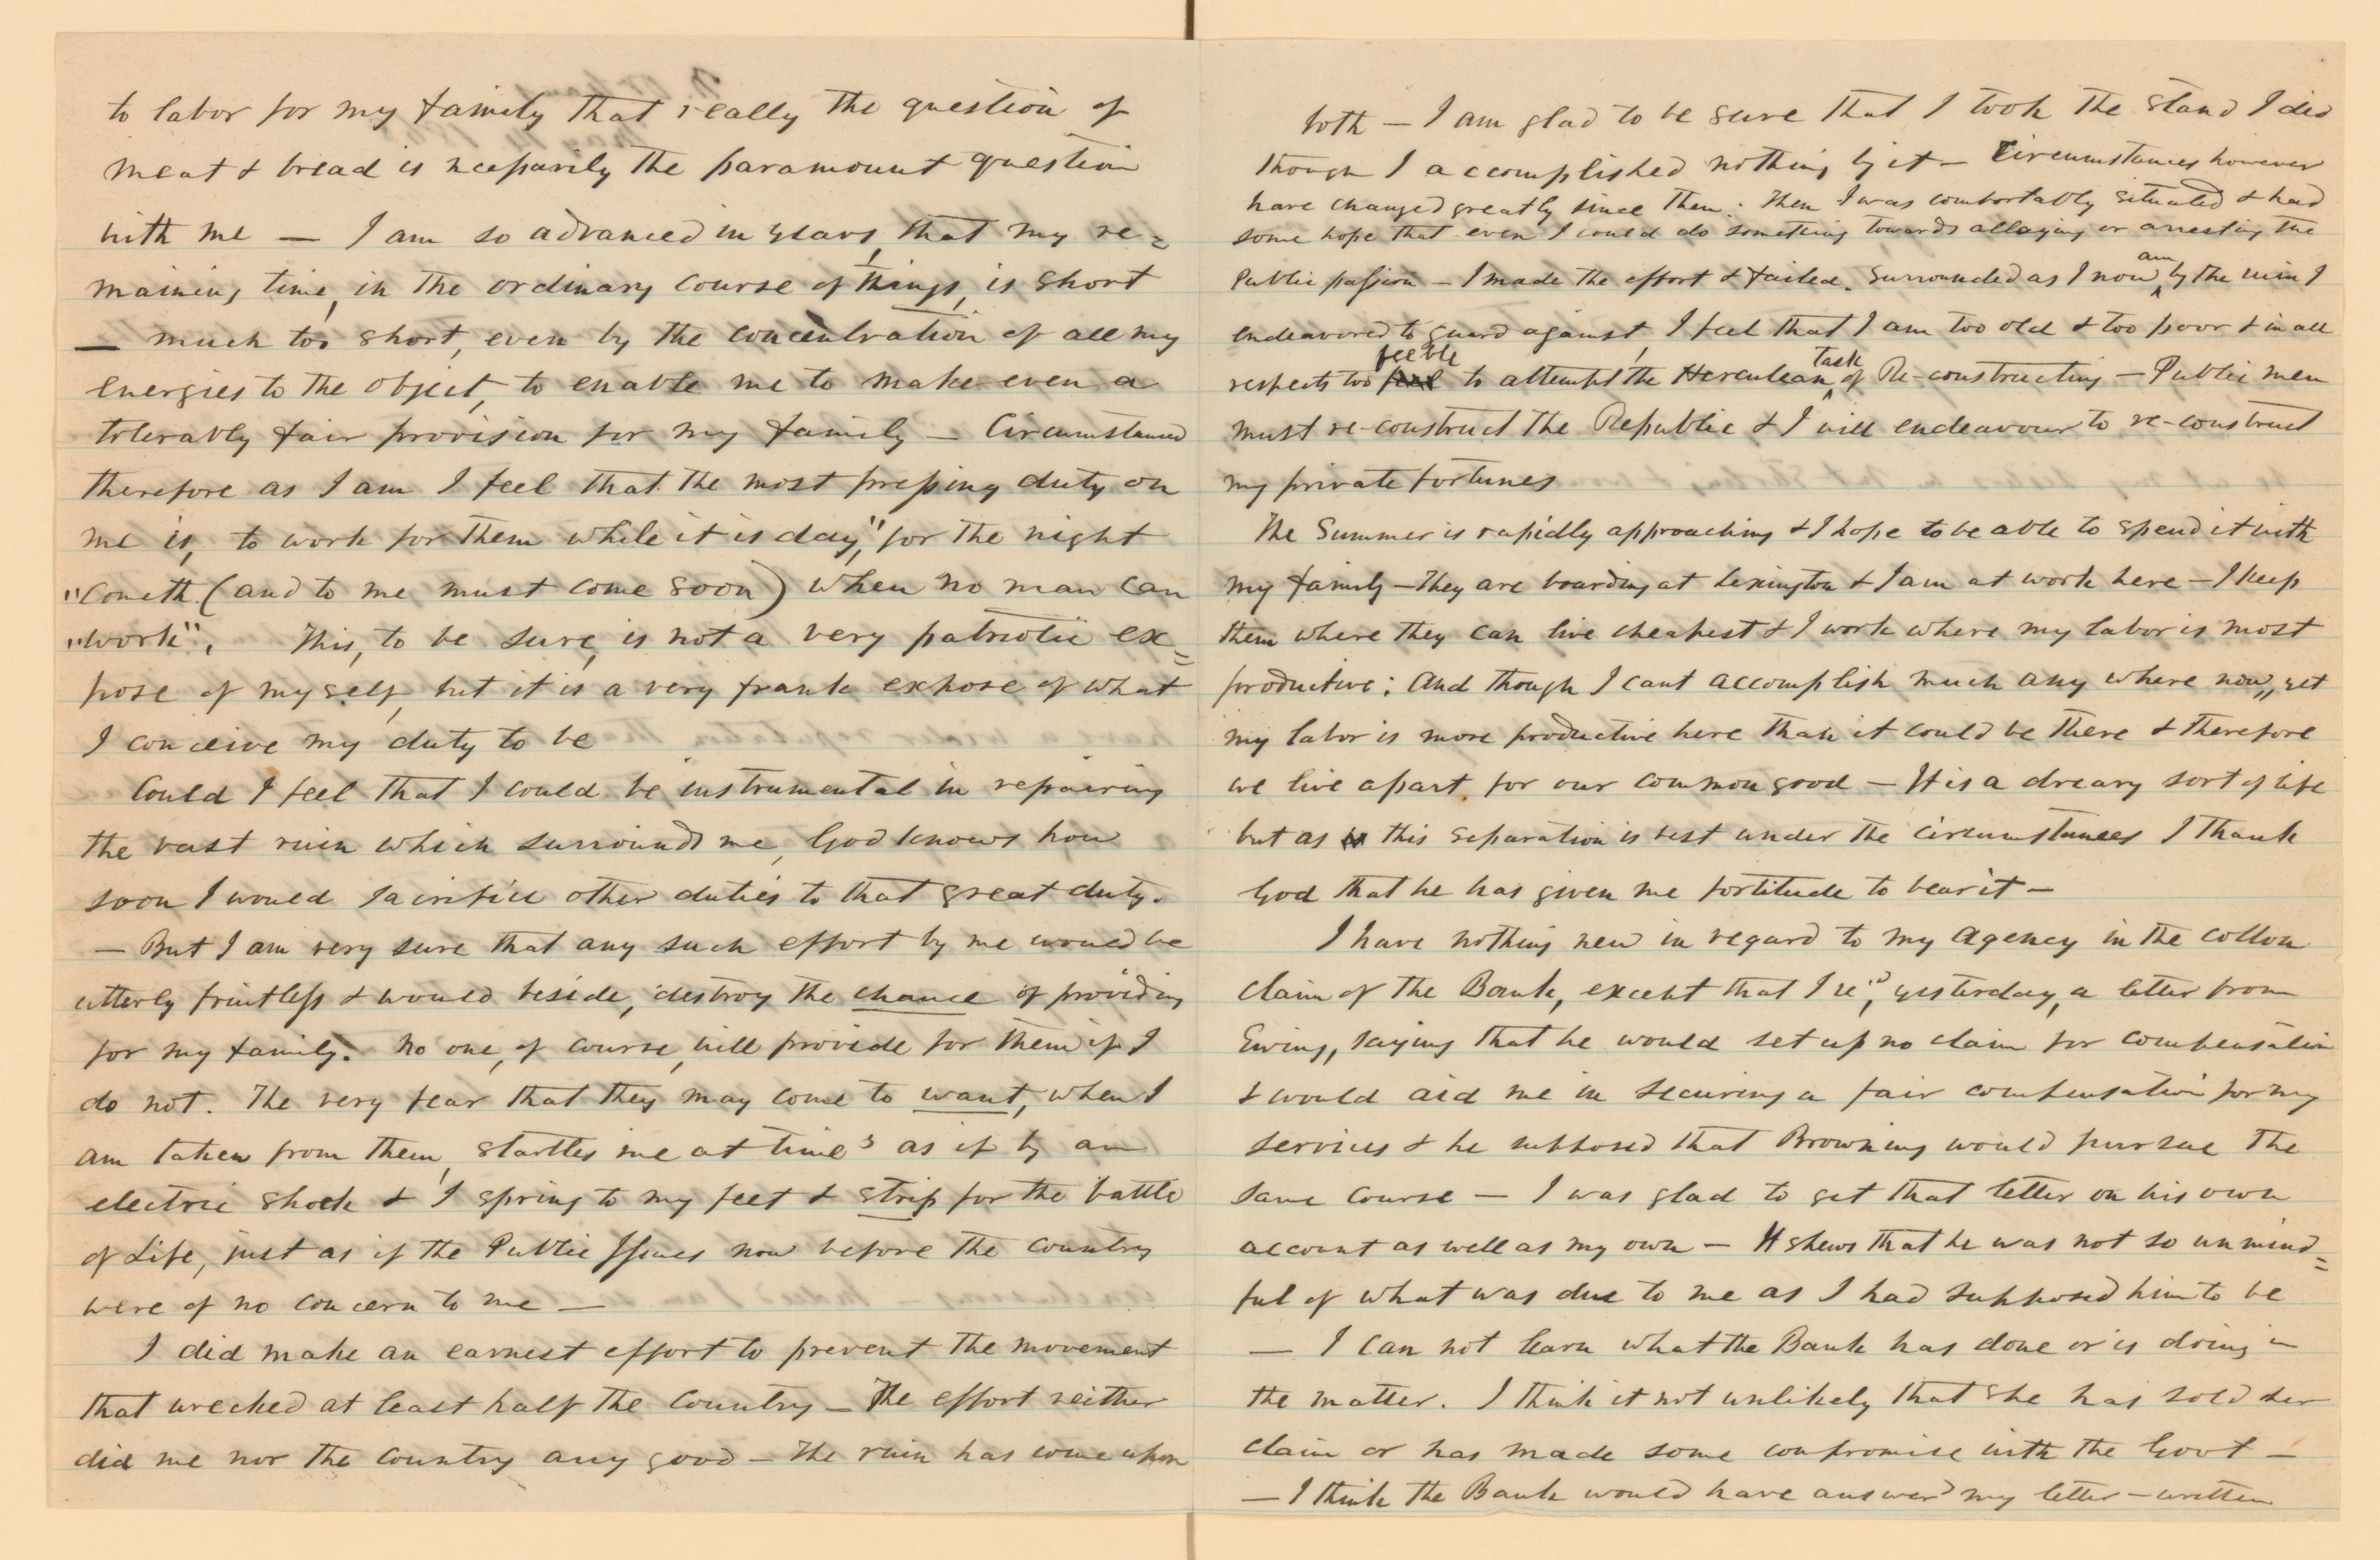 to labor for my family that really the question of
meat & bread is necessarily the paramount question
with me — I am so advanced in years, that my re=
maining time, in the ordinary course of things, is short
— much too short, even by the concentration of all my
energies to the object, to enable me to make even a
tolerably fair provision for my family — Circumstanced
therefore as I am I feel that the most pressing duty on
me is, to work for them while it is day, "for the night
"cometh (and to me must come soon) when no man can
"work". This, to be sure, is not a very patriotic ex=
pose of myself, but it is a very frank expose of what
I conceive my duty to be
Could I feel that I could be instrumental in repairing
the vast ruin which surrounds me, God knows how
soon I would sacrifice other duties to that great duty.
— But I am very sure that any such effort by me would be
utterly fruitless & would beside, destroy the chance of providing
for my family. No one, of course, will provide for them if I
do not. The very fear that they may come to want, when I
am taken from them, startles me at times as if by an
electric shock & I spring to my feet & strip for the battle
of Life, just as if the Public Issues now before the country
were of no concern to me —
I did make an earnest effort to prevent the movement
that wrecked at least half the Country — The effort neither
did me nor the country any good — The ruin has come upon
both — I am glad to be sure that I took the stand I did
though I accomplished nothing by it — Circumstances however
have changed greatly since then. Then I was comfortably situated & had
some hope that even I could do something towards allaying or arresting the
Public passion — I made the effort & failed. Surrounded as I now am by the ruin I
endeavored to guard against, I feel that I am too old & too poor & in all
respects too feeble to attempt the Herculean task of Re-constructing — Public men
must re-construct the Republic & I will endeavour to re-construct
my private fortunes
The Summer is rapidly approaching & I hope to be able to spend it with
my family — They are boarding at Lexington & I am at work here — I keep
them where they can live cheapest & I work where my labor is most
productive: And though I cant accomplish much any where now, yet
my labor is more productive here than it could be there & therefore
we live apart, for our common good — It is a dreary sort of life
but as this separation is best under the circumstances I thank
God that he has given me fortitude to bear it —
I have nothing new in regard to my Agency in the cotton
claim of the Bank, except that I re'd, yesterday, a letter from
Ewing, saying that he would set up no claim for compensation
& would aid me in securing a fair compensation for my
services & he supposed that Browning would pursue the
same course — I was glad to get that letter on his own
account as well as my own — It shews that he was not so unmind=
ful of what was due to me as I had supposed him to be
— I can not learn what the Bank has done or is doing in
the matter. I think it not unlikely that she has sold her
claim or has made some compromise with the Govt —
— I think the Bank would have answerd my letter — written